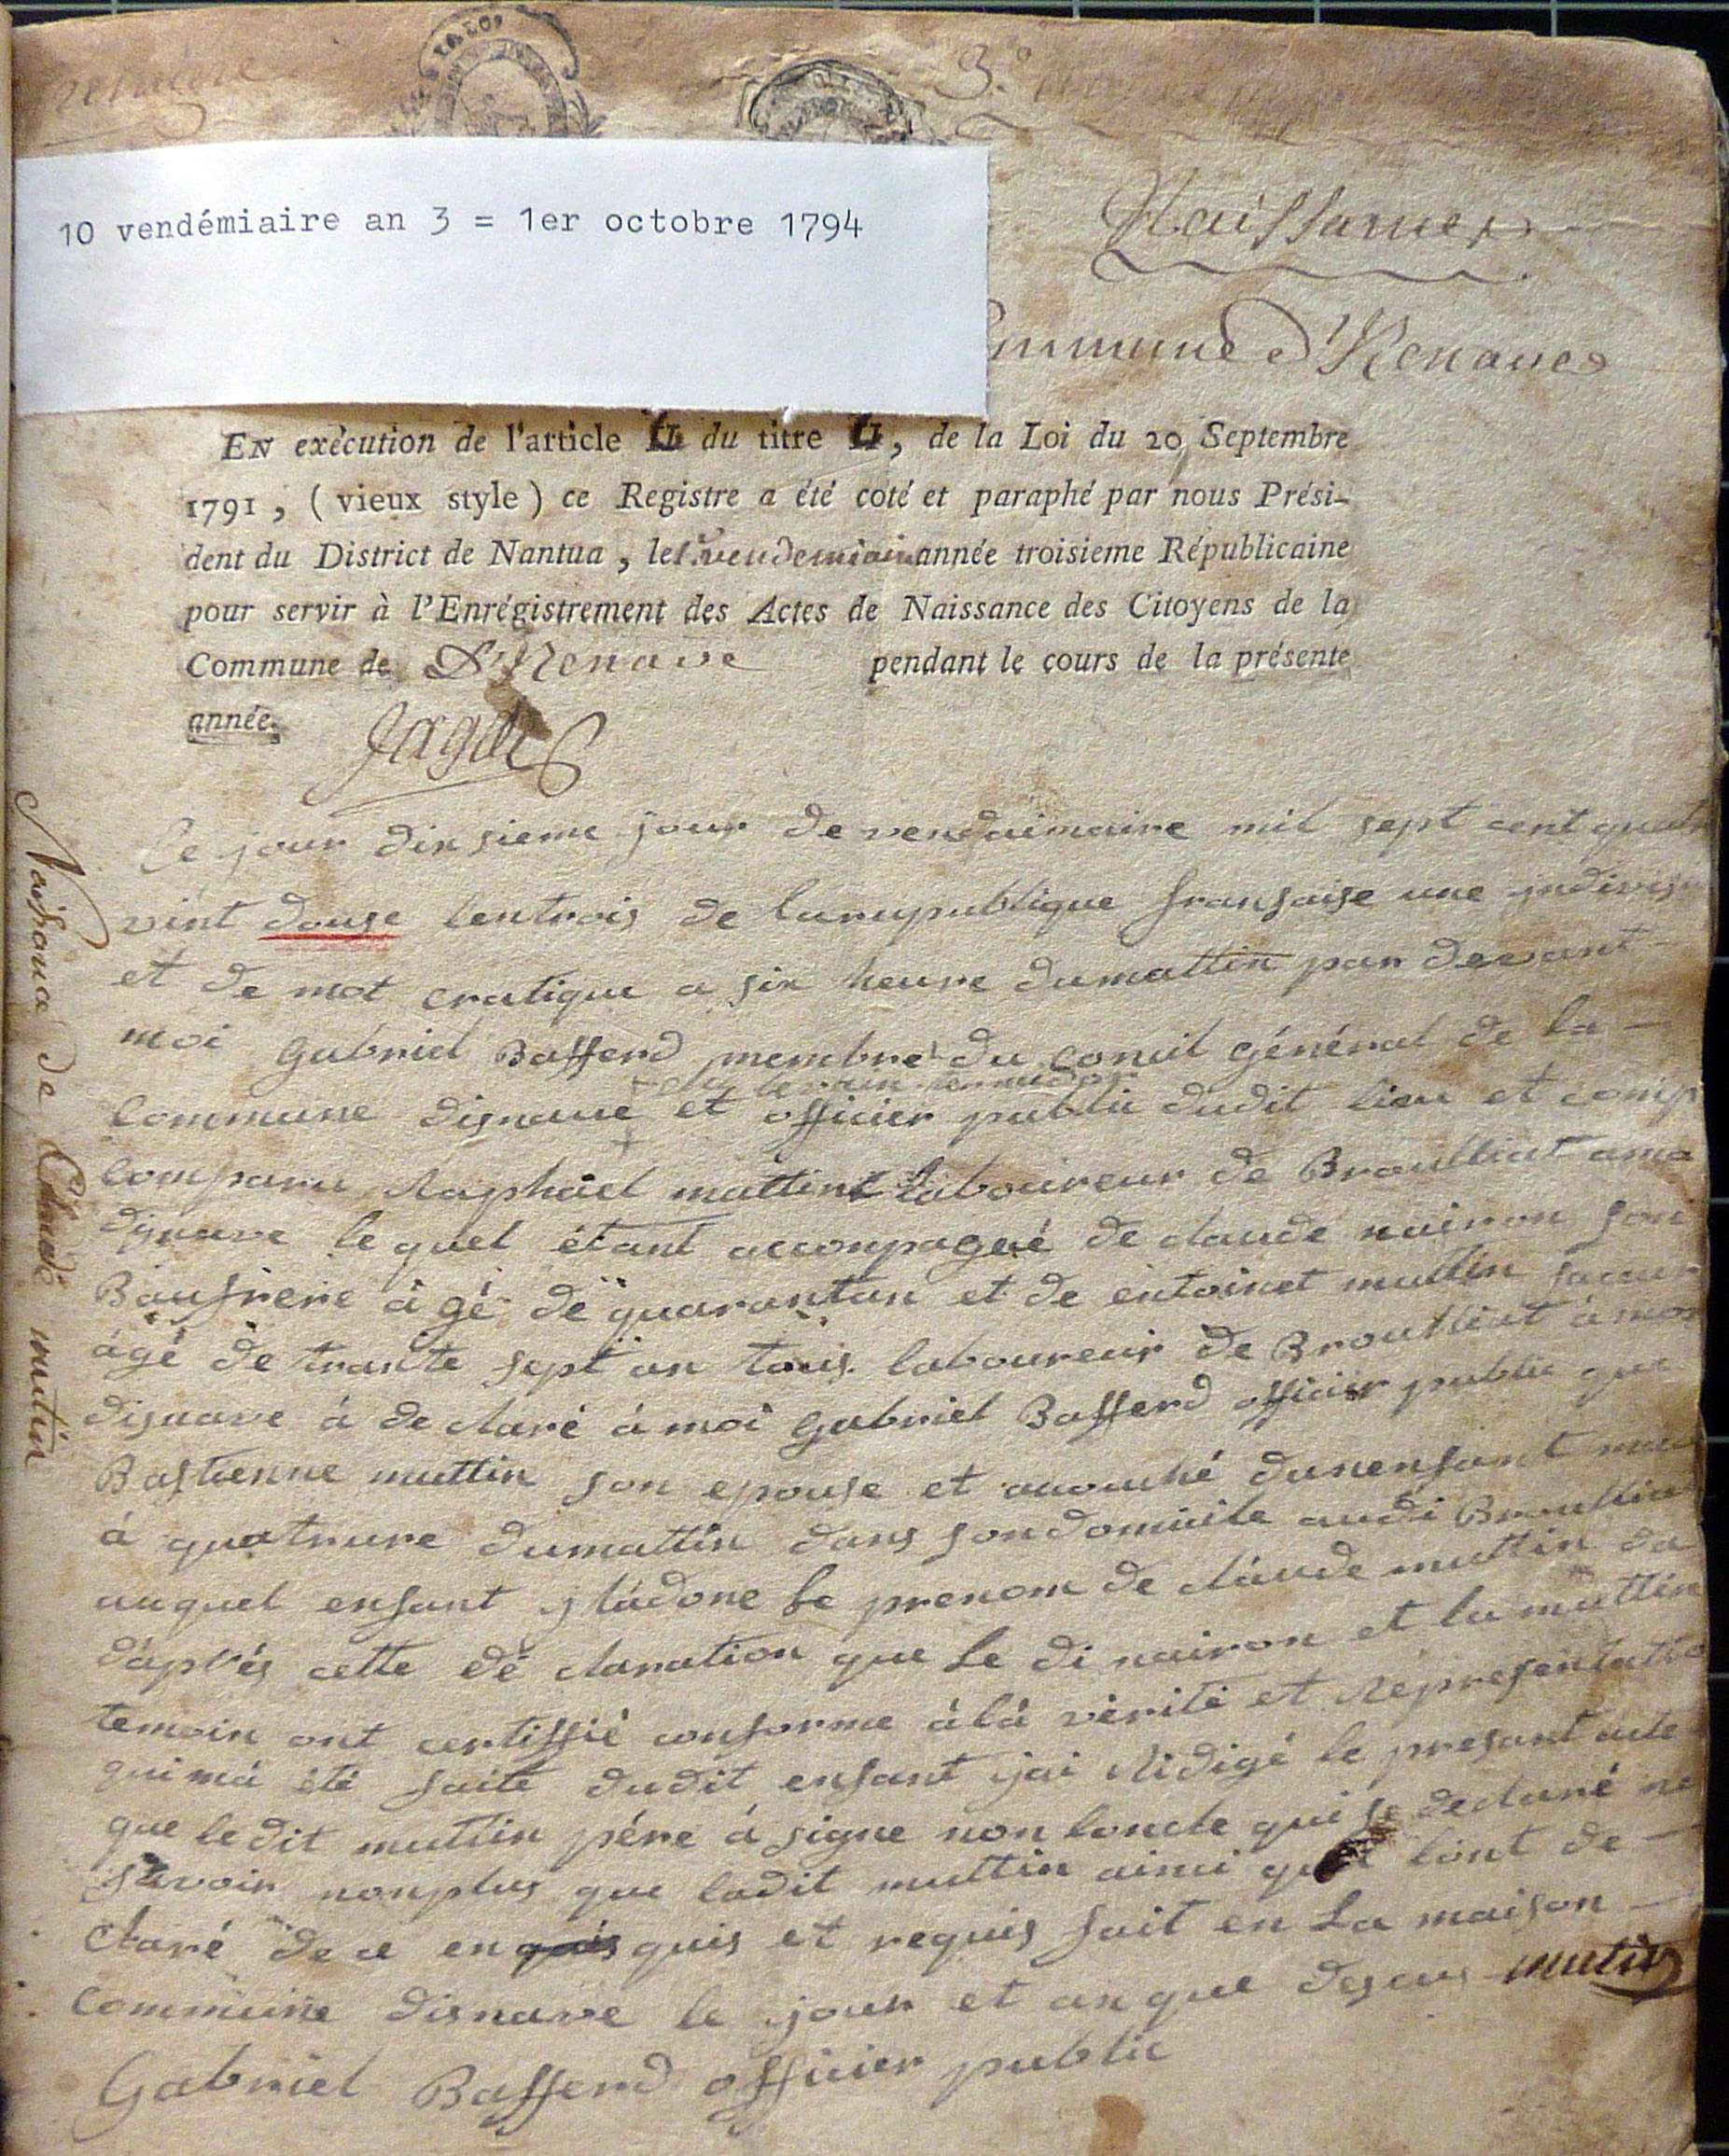 3.e
10 vendémiaire an 3 = 1er octobre 1794
Naissances
ommune d'Isenave
EN exécution de l'article II du titre II, de la Loi du 20 Septembre
1791, (vieux style) ce Registre a été coté et paraphé par nous Prési-
dent du District de Nantua, le vendemiair année troisieme Républicaine
pour servir à l'Enrégistrement des Actes de Naissance des Citoyens de la
Commune de D'Isenave pendant le cours de la présente
année.
Naissance de Claude mutin
Ce jour dixsieme jour de vendaimaire mil sept cent quatr
vint douse lentrois de larepublique fransaise une indivis
et de mot cratique a six heure dumattin par devant
moi gabriel Bafferd membre du conuil général de la
Commune disnave et officier public dudit lieu et comp
Comparu Raphaël muttin laboureur de Broulliat
disnave le quel étant acconpagné de claude nairon son
Baufrere àgé de quarantan et de entoinet muttin
àgé de trante sept an tous laboureur de Broulliat
disnave à de claré à moi gabriel Bafferd officier public que
Bastienne muttin son epouse et acouché dunenfant
à quatrure dumattin dans sondomicile audi Broullia
auquel enfant jladone le prenom de claude muttin da
d'aprés cette dé claration que le di nairon et la muttin
temoin ont certiffié conforme àlà vérité et Representatio
quimà été faite dudit enfant jai Rédigé le presant acte
que ledit muttin pére à signe non loncle qui se declaré ne
savoir nonplus que ladit muttin ainci que lont de
claré de ce enquis quis et requis fait en La maison
commune disnave le jour et anque desus mutin
Gabriel Bafferd officier public